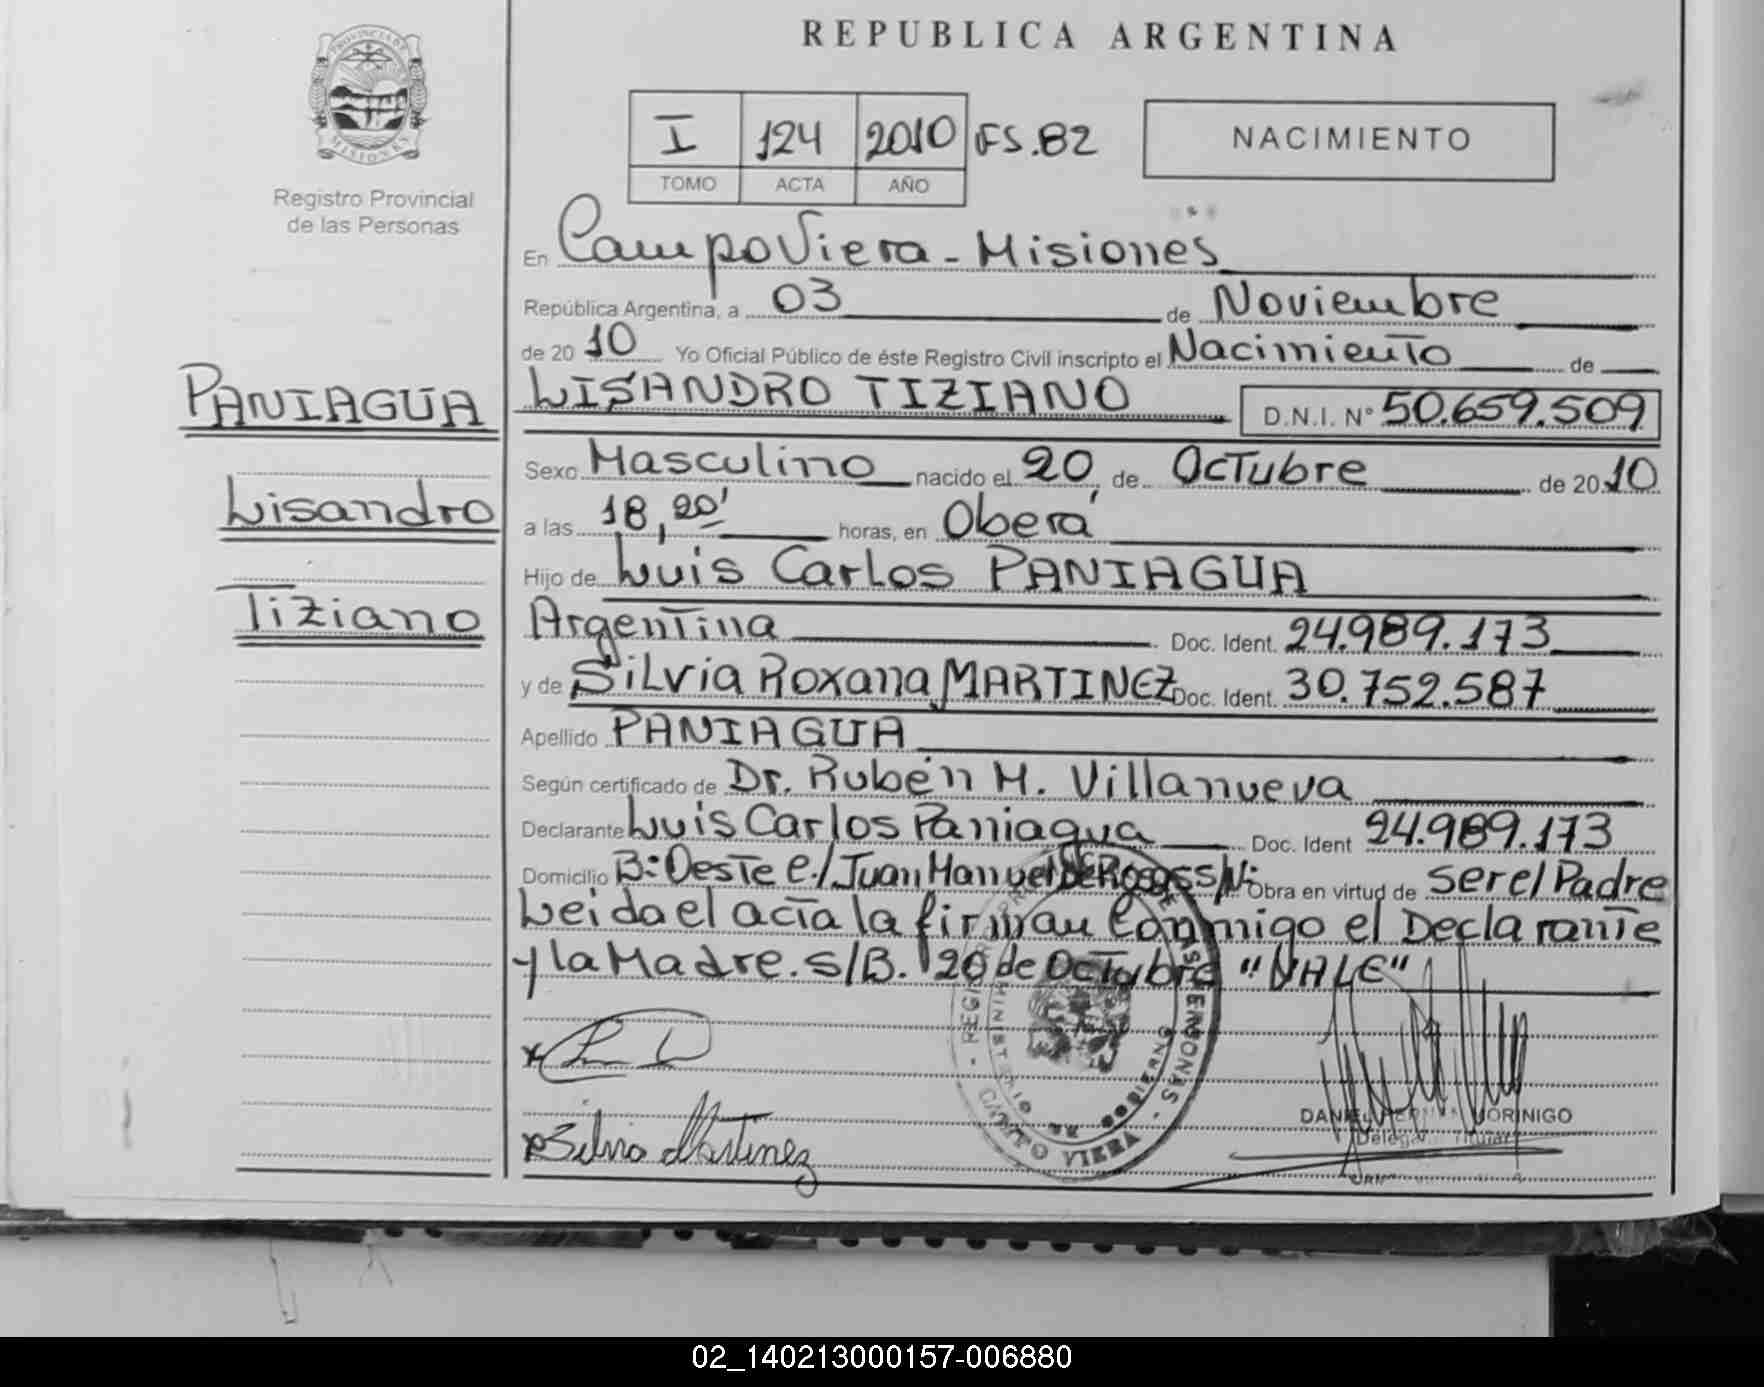 REPUBLICA ARGENTINA
PROVINCIA DE
MISIONES
Registro Provincial
de las Personas
I 124 2010 FS.82
TOMO ACTA AÑO
NACIMIENTO
En CampoViera - Misiones
República Argentina, a 03 de Noviembre
de 20 10 Yo Oficial Público de éste Registro Civil inscripto el Nacimiento de
PANIAGUA
Lisandro
Tiziano
LISANDRO TIZIANO D.N.I. N° 50.659.509
Sexo Masculino nacido el 20 de Octubre de 20 10
a las 18,20' horas, en Oberá
Hijo de Luis Carlos PANIAGUA
Argentina Doc. Ident. 24.989.173
y de Silvia Roxana MARTINEZ Doc. Ident. 30.752.587
Apellido PANIAGUA
Según certificado de Dr. Rubén M. Villanueva
Declarante Luis Carlos Paniagua Doc. Ident 24.989.173
Domicilio B: Oeste C/ Juan Manuel De Rosas S/N: Obra en virtud de Ser el Padre
Leida el acta la firman Conmigo el Declarante
y la Madre. S/B. 20 de Octubre "VALE"
Silvia Martinez
CAMPO VIERA
MINISTERIO DE GOBIERNO
DANIEL MORINIGO
Titular
02_140213000157-006880